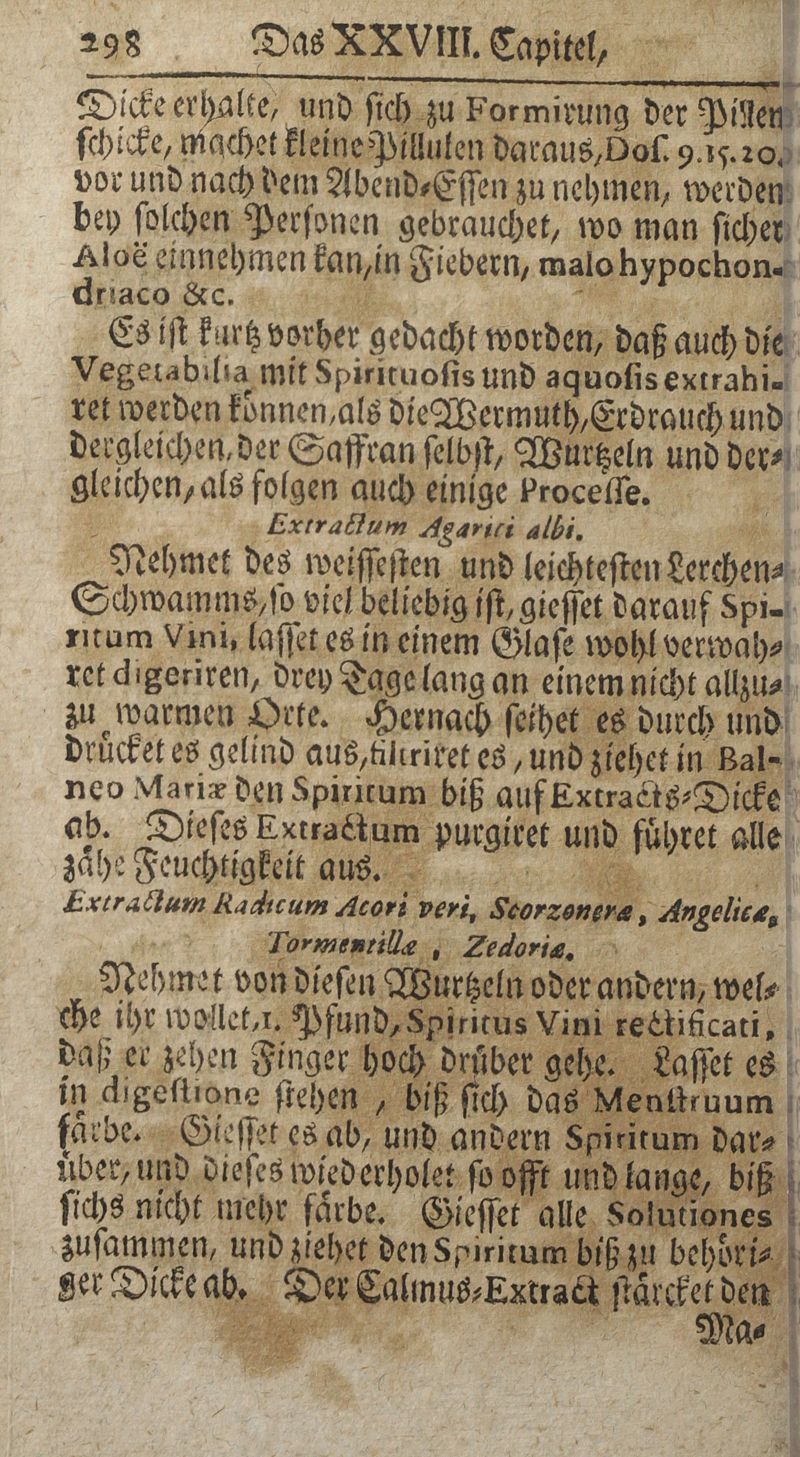 298 Das XXVIII. Capitel,
Dicke erhalte, und ſich zu Formirung der Pillen
ſchicke, machet kleine Pillulen daraus, Doſ. 9. 15. 20.
vor und nach dem Abend⸗Eſſen zu nehmen, werden
bey ſolchen Perſonen gebrauchet, wo man ſicher
Aloë einnehmen kan, in Fiebern, malo hypochon-
driaco &c.
Es iſt kurtz vorher gedacht worden, daß auch die
Vegetabilia mit Spirituoſis und aquoſis extrahi-
ret werden können, als die Wermuth, Erdrauch und
dergleichen, der Saffran ſelbſt, Wurtzeln und der⸗
gleichen, als folgen auch einige Proceſſe.
Extractum Agarici albi.
Nehmet des weiſſeſten und leichteſten Lerchen⸗
Schwamms, ſo viel beliebig iſt, gieſſet darauf Spi-
ritum Vini, laſſet es in einem Glaſe wohl verwah⸗
ret digeriren, drey Tage lang an einem nicht allzu⸗
zu warmen Orte. Hernach ſeihet es durch und
drücket es gelind aus, filtriret es, und ziehet in Bal-
neo Mariæ den Spiritum biß auf Extracts⸗Dicke
ab. Dieſes Extractum purgiret und führet alle
zähe Feuchtigkeit aus.
Extractum Radicum Acori veri, Scorzoneræ, Angelicæ,
Tormentillæ, Zedoriæ.
Nehmet von dieſen Wurtzeln oder andern, wel⸗
che ihr wollet, 1. Pfund, Spiritus Vini rectificati,
daß er zehen Finger hoch drüber gehe. Laſſet es
in digeſtione ſtehen, biß ſich das Menſtruum
färbe. Gieſſet es ab, und andern Spiritum dar⸗
über, und dieſes wiederholet ſo offt und lange, biß
ſichs nicht mehr färbe. Gieſſet alle Solutiones
zuſammen, und ziehet den Spiritum biß zu behöri⸗
ger Dicke ab. Der Calmus⸗Extract ſtärcket den
Ma⸗